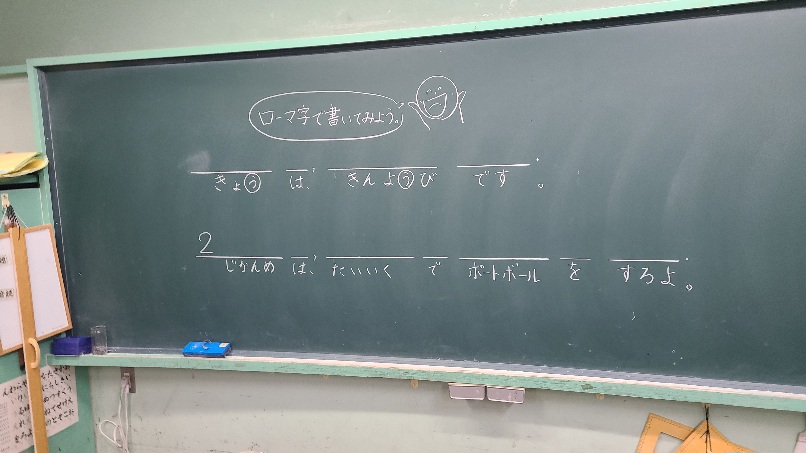 ローマ字で書いてみよう。
きょう は、 きんようび です。
2 じかんめ は、 たいいく で ポートボール を するよ。